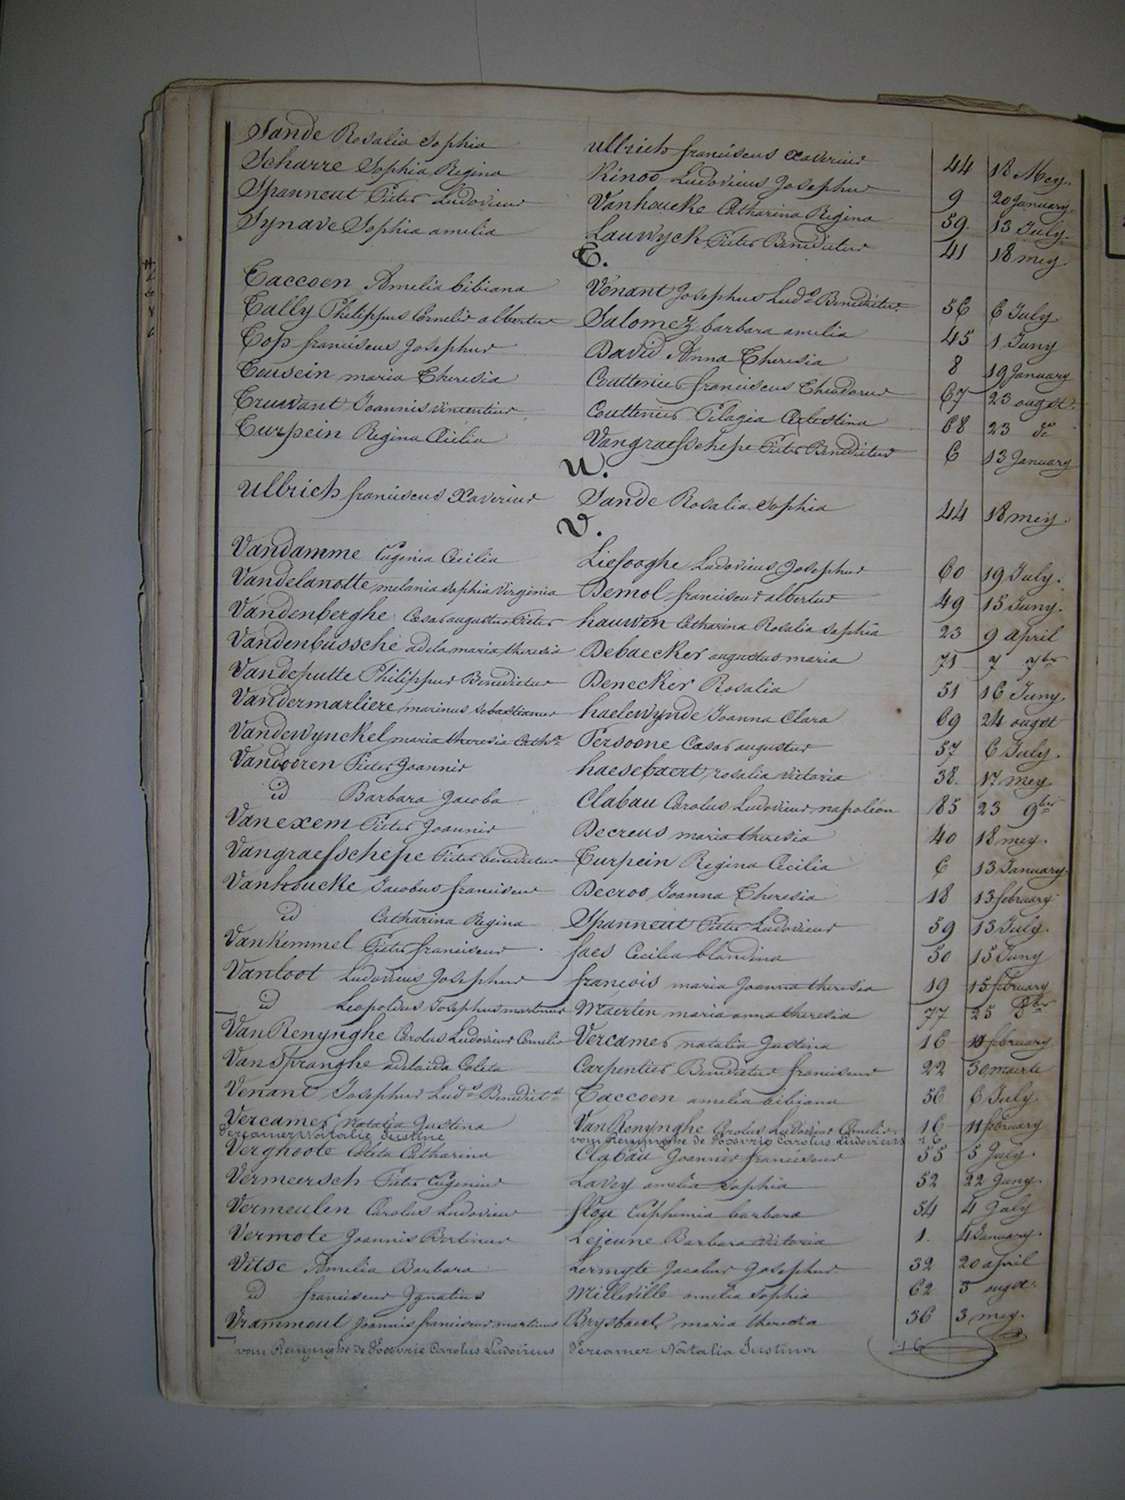 Sande Rosalia Sophia Ullrich franciscus Xaverius 44 18 Mey.
Scharre Sophia Regina Kinoo Ludovicus Josephus 9 20 January.
Spanneut Pieter Ludovicus Vanhoucke Catharina Regina 59. 13 July.
Synave Sophia amelia Lauwyck Pieter Benedictus 41 18 mey
T.
Taccoen Amelia bibiana Venant Josephus Lud.s Benedictus. 56 6 July
Tally Philippus Cornelis albertus Salomez barbara amelia 45 1 Juny
Top franciscus Josephus David Anna Theresia 8 19 January
Tousein maria Theresia Couttenier franciscus Theodorus 67 23 ougst.
Truwant Joannis vincentius Couttenier Pelagia Celestina 68 23 do
Turpein Regina Cicilia Vangraefschepe Pieter Benedictus 6 13 January
U.
Ullrich franciscus Xaverius Sande Rosalia Sophia 44 18 mey.
V.
Vandamme Eugenia Cecilia Liefooghe Ludovicus Josephus 60 19 July.
Vandelanotte melania sophia virginia Demol franciscus albertus 49 15 Juny.
Vandenberghe Cesar augustus Pieter hauwen Catharina Rosalia sophia 23 9 april
Vandenbussche adela maria theresia Debaecker augustus maria 71 7 7ber
Vandeputte Philippus Benedictus Denecker Rosalia 51 16 Juny.
Vandermarliere marinus sebastianus haelewynde Joanna Clara 69 24 ougst
Vandewynckel maria theresia Cath.a Persoone Cesar augustus 57 6 July.
Vandooren Pieter Joannis haesebaert rosalia victoria 38. 17 mey
id Barbara Jacoba Clabau Carolus Ludovicus napoleon 85 23 9ber
Vanexem Pieter Joannis Decreus maria theresia 40 18 mey.
Vangraefschepe Pieter benedictus Turpein Regina Cecilia 6 13 January
Vanhoucke Jacobus franciscus Decroo Joanna Theresia 18 13 february
id Catharina Regina Spanneut Pieter Ludovicus 59 13 July.
Vankemmel Pieter franciscus faes Cecilia blandina 50 15 Juny
Vanloot Ludovicus Josephus françois maria Joanna theresia 19 15 february
id Leopoldus Josephus martinus Maerten maria anna theresia 77 25 8ber
VanRenynghe Carolus Ludovicus Cornelis Vercamer natalia Justina 16 11 february
VanSpranghe adelaida Coleta Carpentier Benedictus franciscus 22 30 maerte
Venant Josephus Lud.s Benedict.s Taccoen amelia bibiana 56 6 July
Vercamer natalia Justina VanRenynghe Carolus Ludovicus Cornelis 16 11 february
Vercamer Natalie Justine vam Renynghe de Voxvrie Carolus Ludovicus 16
Verghoote Coleta Catharina Clabau Joannis franciscus 55 5 July.
Vermeersch Pieter Eugenius Lavey amelia sophia 52 22 Juny.
Vermeulen Carolus Ludovicus flou Euphemia barbara 54 4 July
Vermote Joannis Bertinus Lejeune Barbara victoria 1. 4 January.
Vitse Amelia Barbara Lermyte Jacobus Josephus 32 20 april
id franciscus Ignatius Milleville amelia sophia 62 3 ougst.
Vrammout Joannis franciscus martinus Brysbaert maria theresia 36 3 mey.
vam Renynghe de Voxvrie Carolus Ludovicus Vercamer Natalia Justina 16